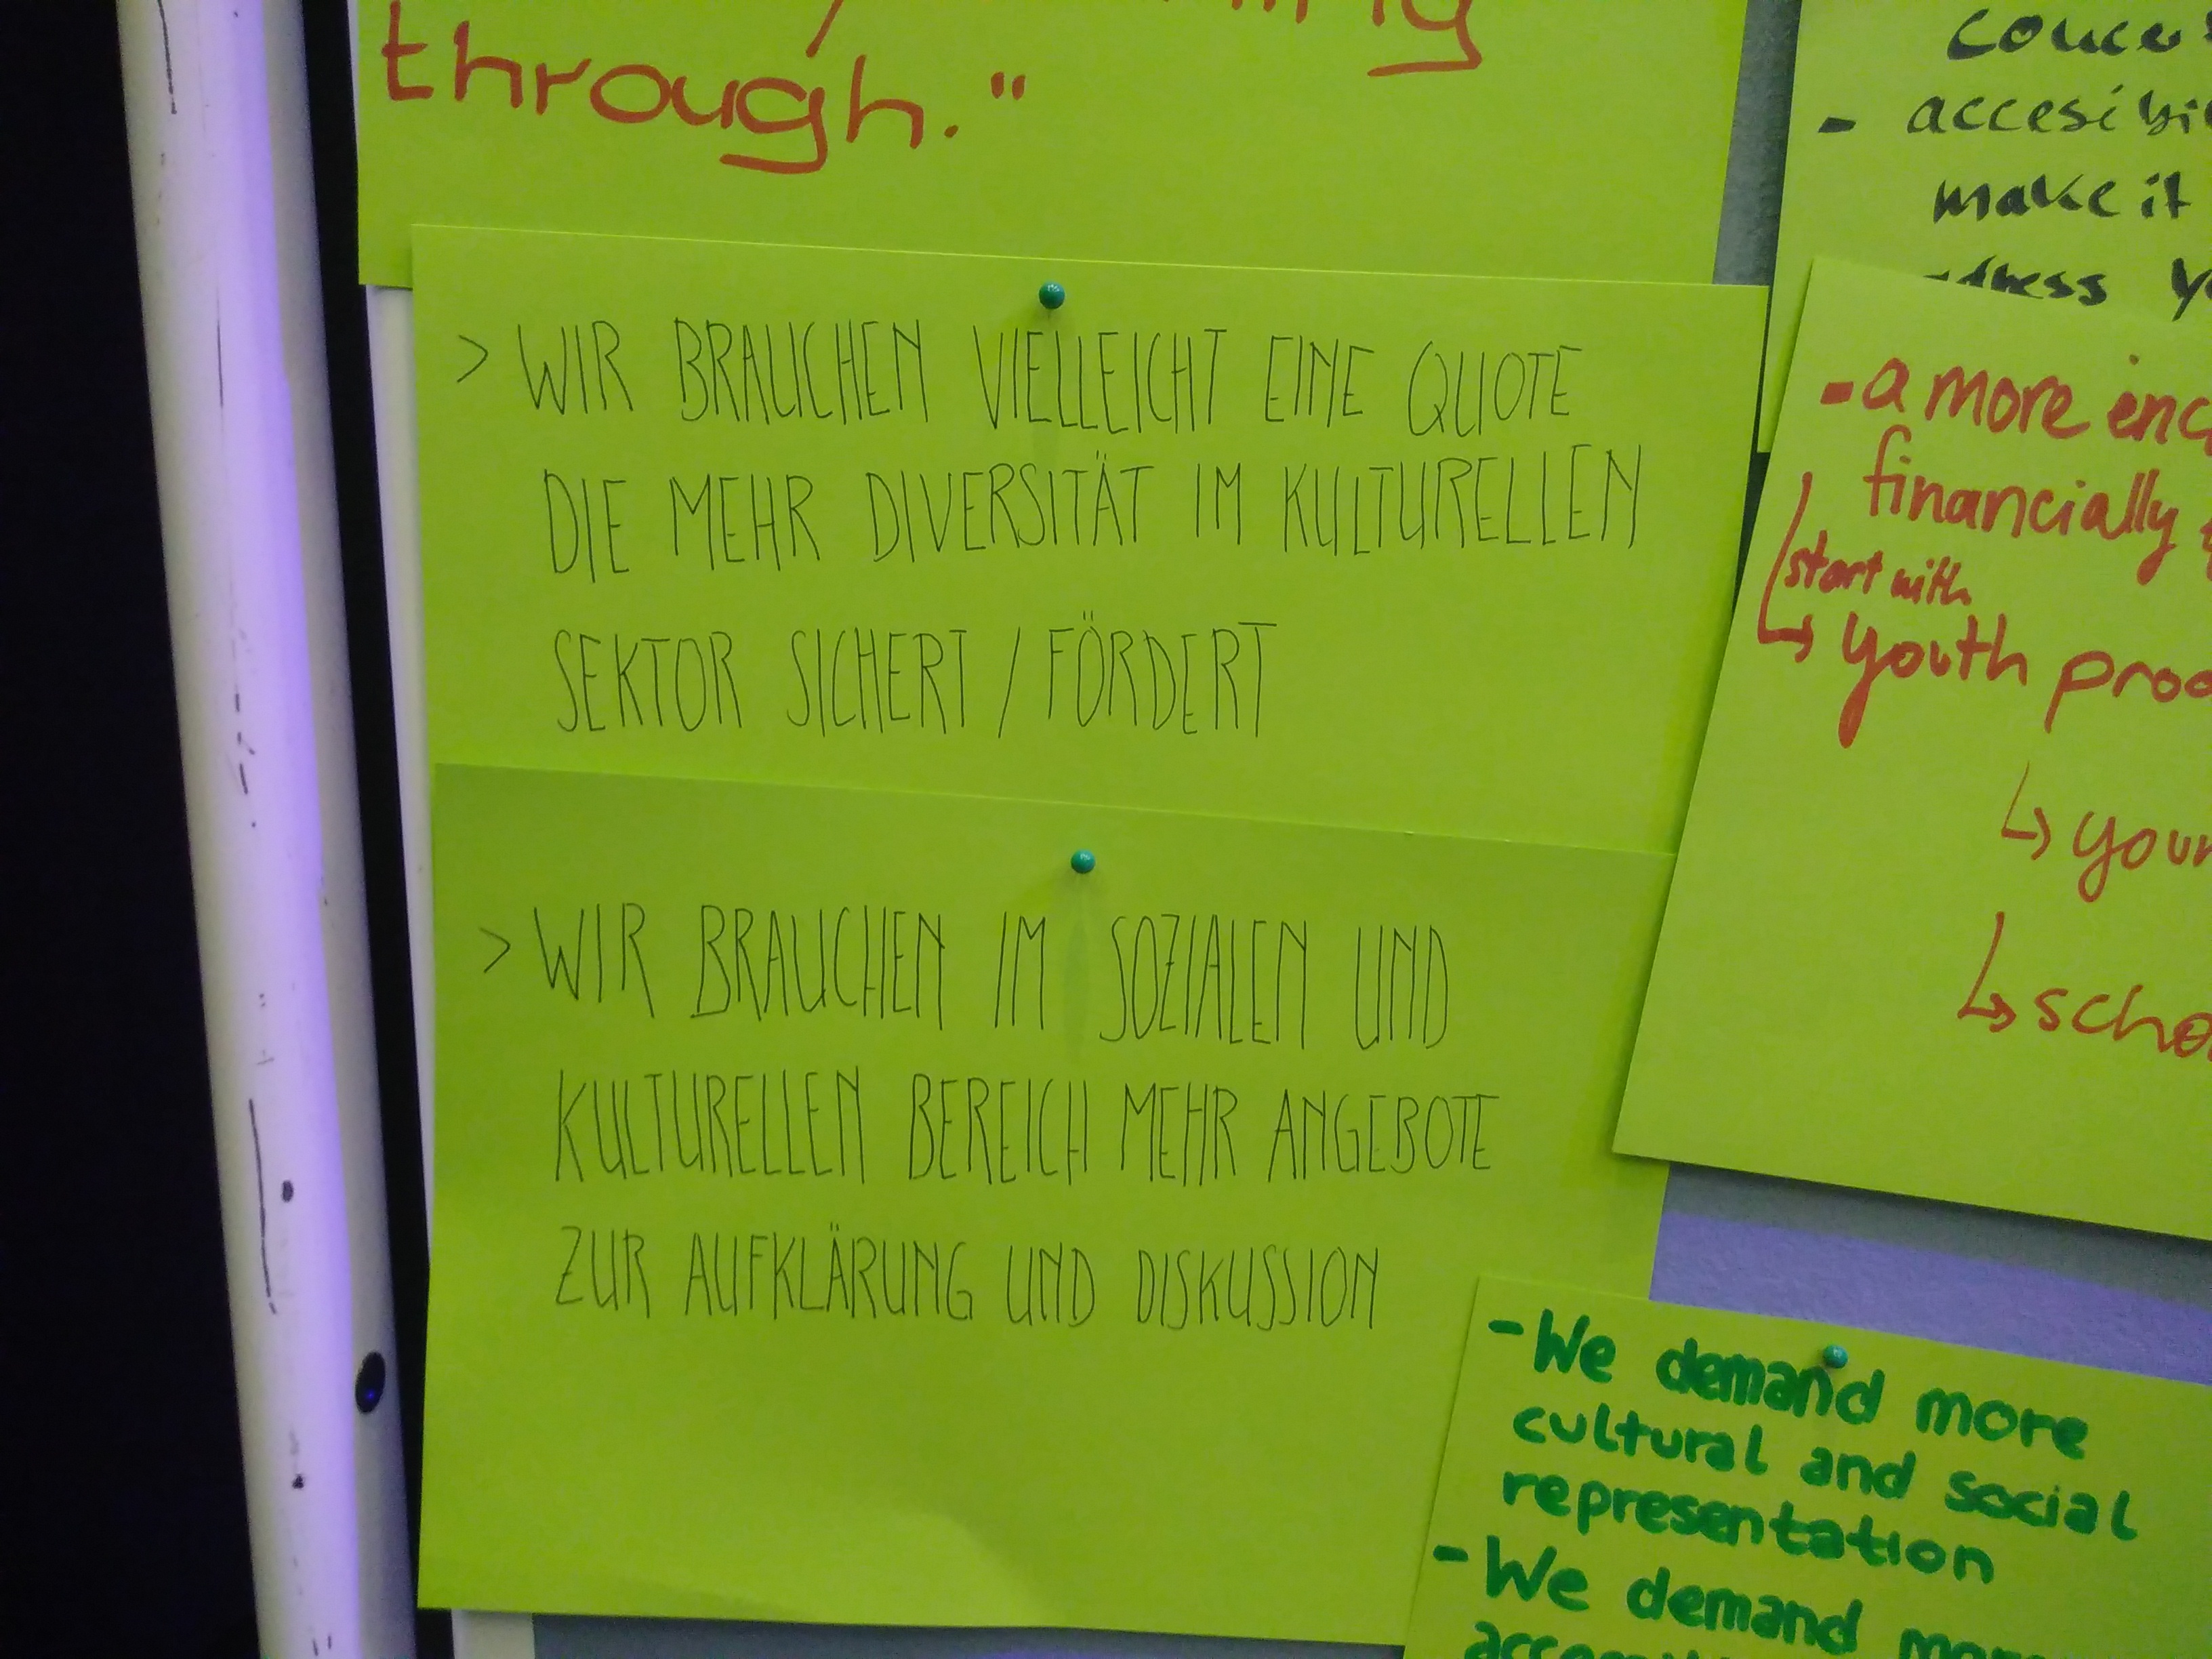 through."
> WIR BRAUCHEN VIELLEICHT EINE QUOTE
DIE MEHR DIVERSITÄT IM KULTURELLEN
SEKTOR SICHERT / FÖRDERT
> WIR BRAUCHEN IM SOZIALEN UND
KULTURELLEN BEREICH MEHR ANGEBOTE
ZUR AUFKLÄRUNG UND DISKUSSION
make it
- a more
financially
start with
↳ youth
↳
↳
- We demand more
cultural and social
representation
- We demand